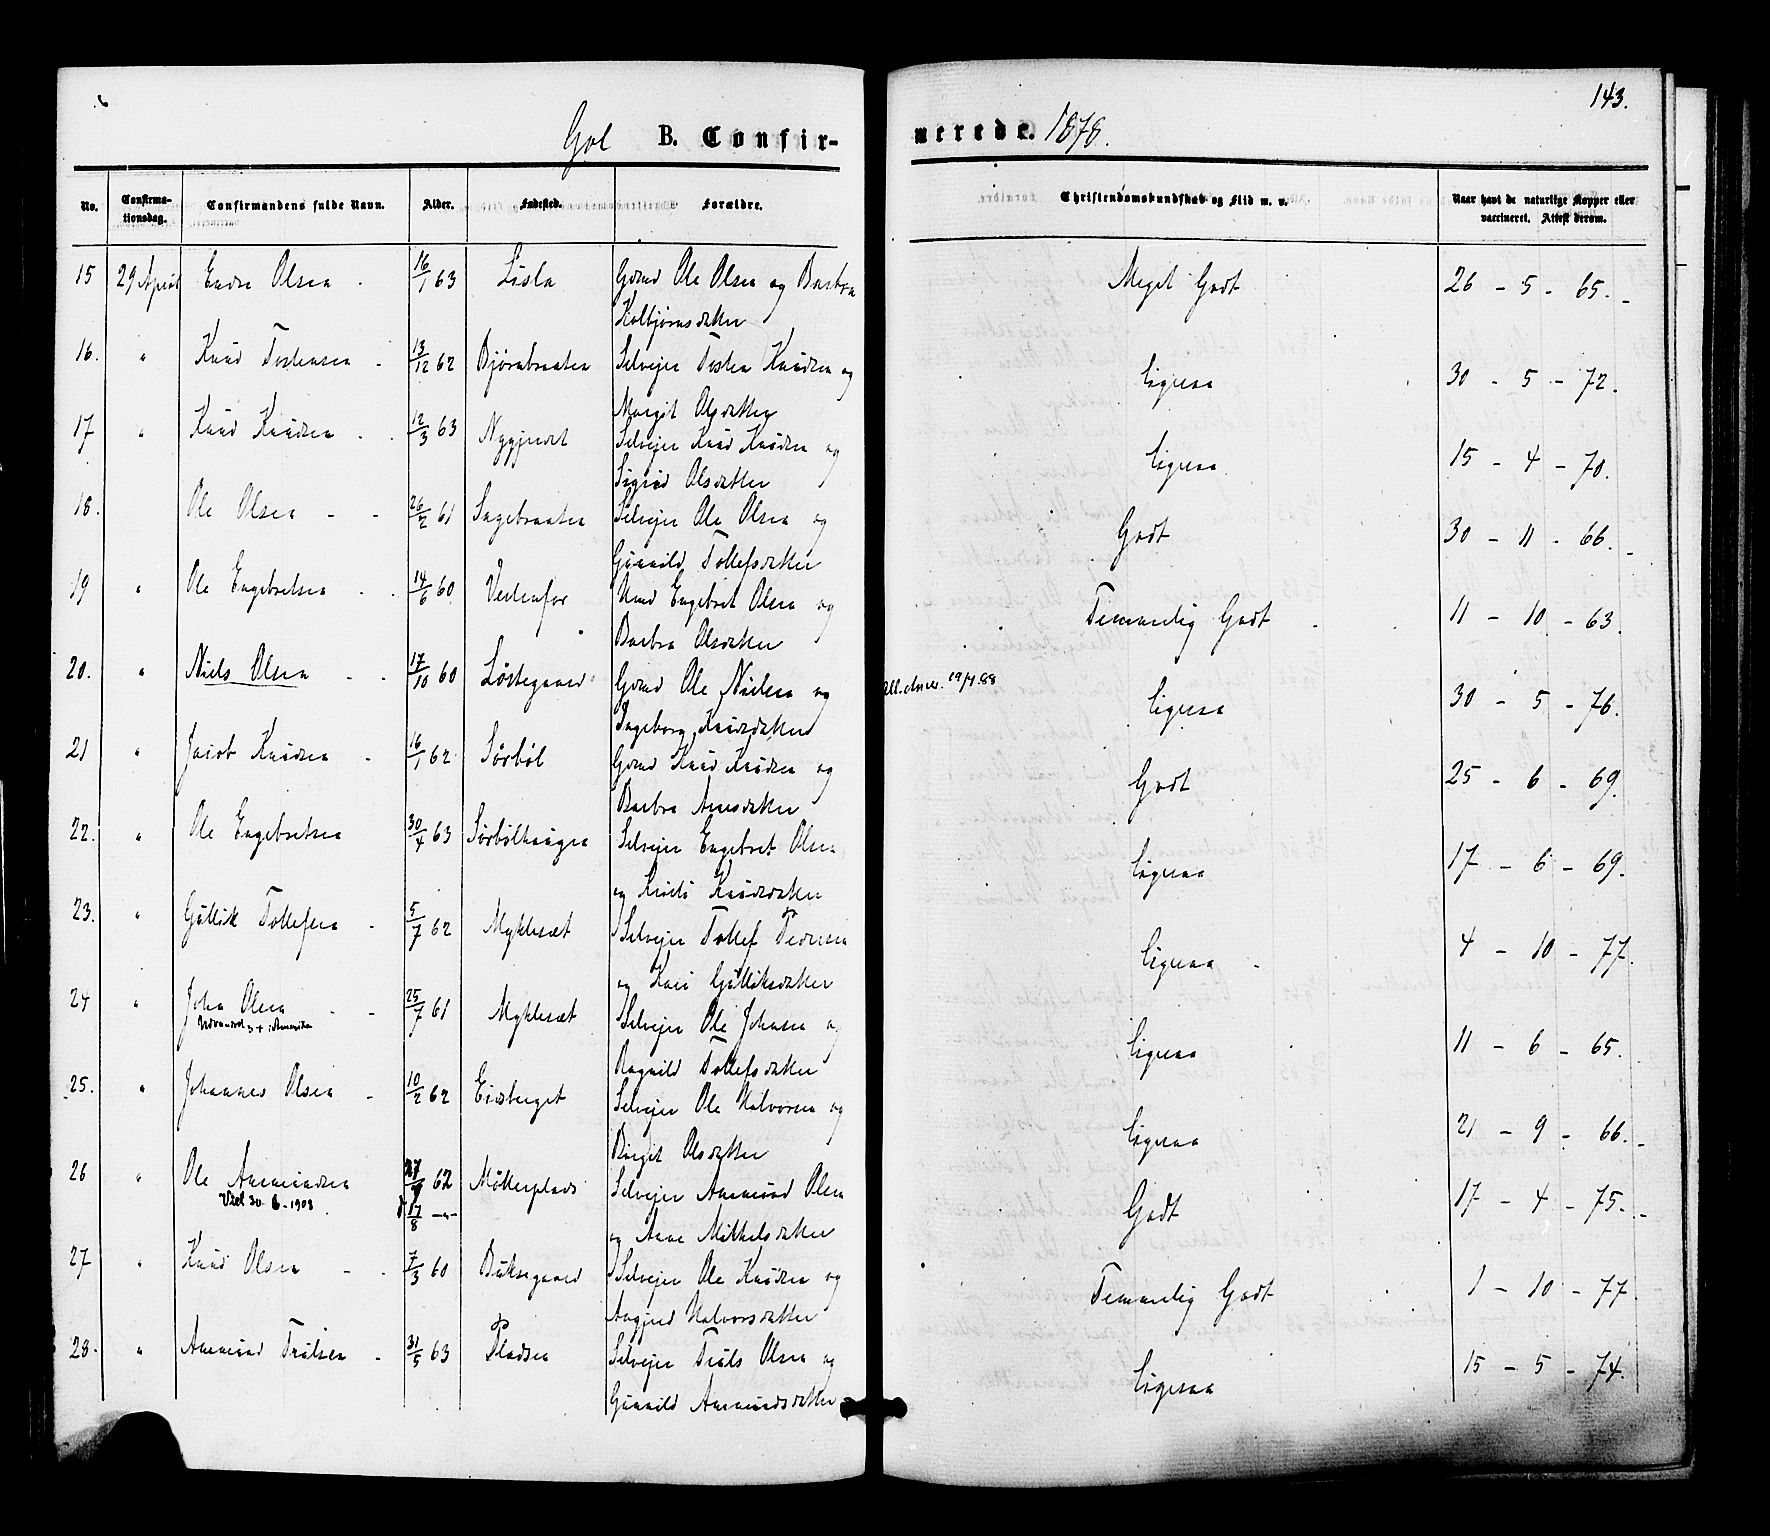 143.
Gol B. Confirmerede. 1878.
No. Confirmationsdag. Confirmandens fulde Navn. Alder. Fødested. Forældre. Christendomskundskab og Flid m. v. Naar havt de naturlige Kopper eller vaccineret. Attest derom.
15 29 April Endre Olsen 16/1 63 Lisla Gbmd Ole Olsen og Barbra Kolbjørnsdatter Meget Godt 26 - 5 - 65.
16. " Knud Tostensen 13/12 62 Bjørnbraaten Selvejer Tosten Knudsen og Margit Olsdatter ligesaa 30 - 5 - 72.
17 " Knud Knudsen 12/3 63 Nygjerdet Selvejer Knud Knudsen og Sigrid Olsdatter ligesaa 15 - 4 - 70.
18. Ole Olsen 26/2 61 Sagebraaten Selvejer Ole Olsen og Gunnild Tollefsdatter Godt 30 - 11 - 66.
19 " Ole Engebretsen 14/6 60 Vedenfor Hmd Engebret Olsen og Barbra Olsdatter Temmelig Godt 11 - 10 - 63.
20. " Niels Olsen 17/10 60 Løstegaard Gbmd Ole Nielsen og Ingeborg Knudsdatter 19/4.88 ligesaa 30 - 5 - 76.
21 " Jacob Knudsen 16/1 62 Sørbøl Gbmd Knud Knudsen og Barbra Arnesdatter Godt 25 - 6 - 69.
22. " Ole Engebretsen 30/4 63 Sørbølhaugen Selvejer Engebret Olsen og Knudsdatter ligesaa 17 - 6 - 69.
23. " Gullik Tollefsen 5/7 62 Myklesæt Selvejer Tollef Pedersen og Kari Gulliksdatter ligesaa 4 - 10 - 77.
24 " John Olsen 25/7 61 Myklesæt Selvejer Ole Johnsen og Ragnild Tollefsdatter ligesaa 11 - 6 - 65.
Udvandret i Amerika
25. " Johannes Olsen 10/2 62 Eidsberget Selvejer Ole Halvorsen og Birgit Olsdatter ligesaa 21 - 9 - 66.
26 " Ole Aamundsen 27/7 62 Møllerplads Selvejer Aamund Olsen og Anne Mikkelsdatter Godt 17 - 4 - 75.
Viet 30-6-1908 17/8
27 " Knud Olsen 7/3 60 Buksegaard Selvejer Ole Knudsen og Angjerd Halvorsdatter Temmelig Godt 1 - 10 - 77.
28. " Aamund Trulsen 31/5 63 Pladsen Selvejer Truls Olsen og Gunnild Aamundsdatter ligesaa 15 - 5 - 74.